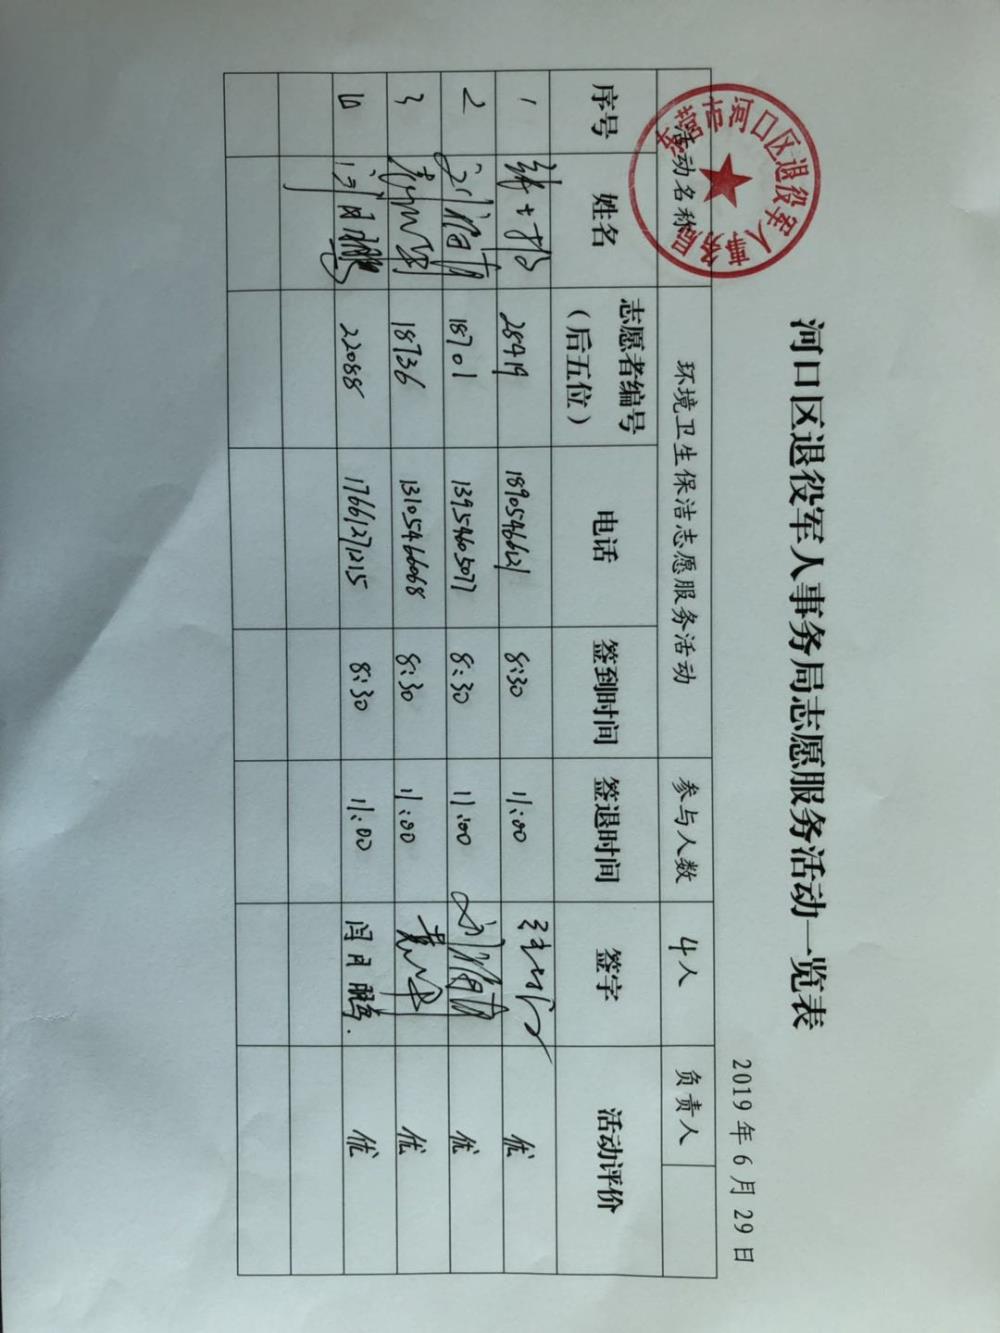 河口区退役军人事务局志愿服务活动一览表
2019年6月29日
活动名称 环境卫生保洁志愿服务活动 参与人数 4人 负责人
序号 姓名 志愿者编号（后五位） 电话 签到时间 签退时间 签字 活动评价
1 28419 18905466121 8:30 11:00 优
2 18701 13954605077 8:30 11:00 优
3 18736 13105466068 8:30 11:00 优
闫月鹏 22088 17661271215 8:30 11:00 闫月鹏. 优
东营市河口区退役军人事务局